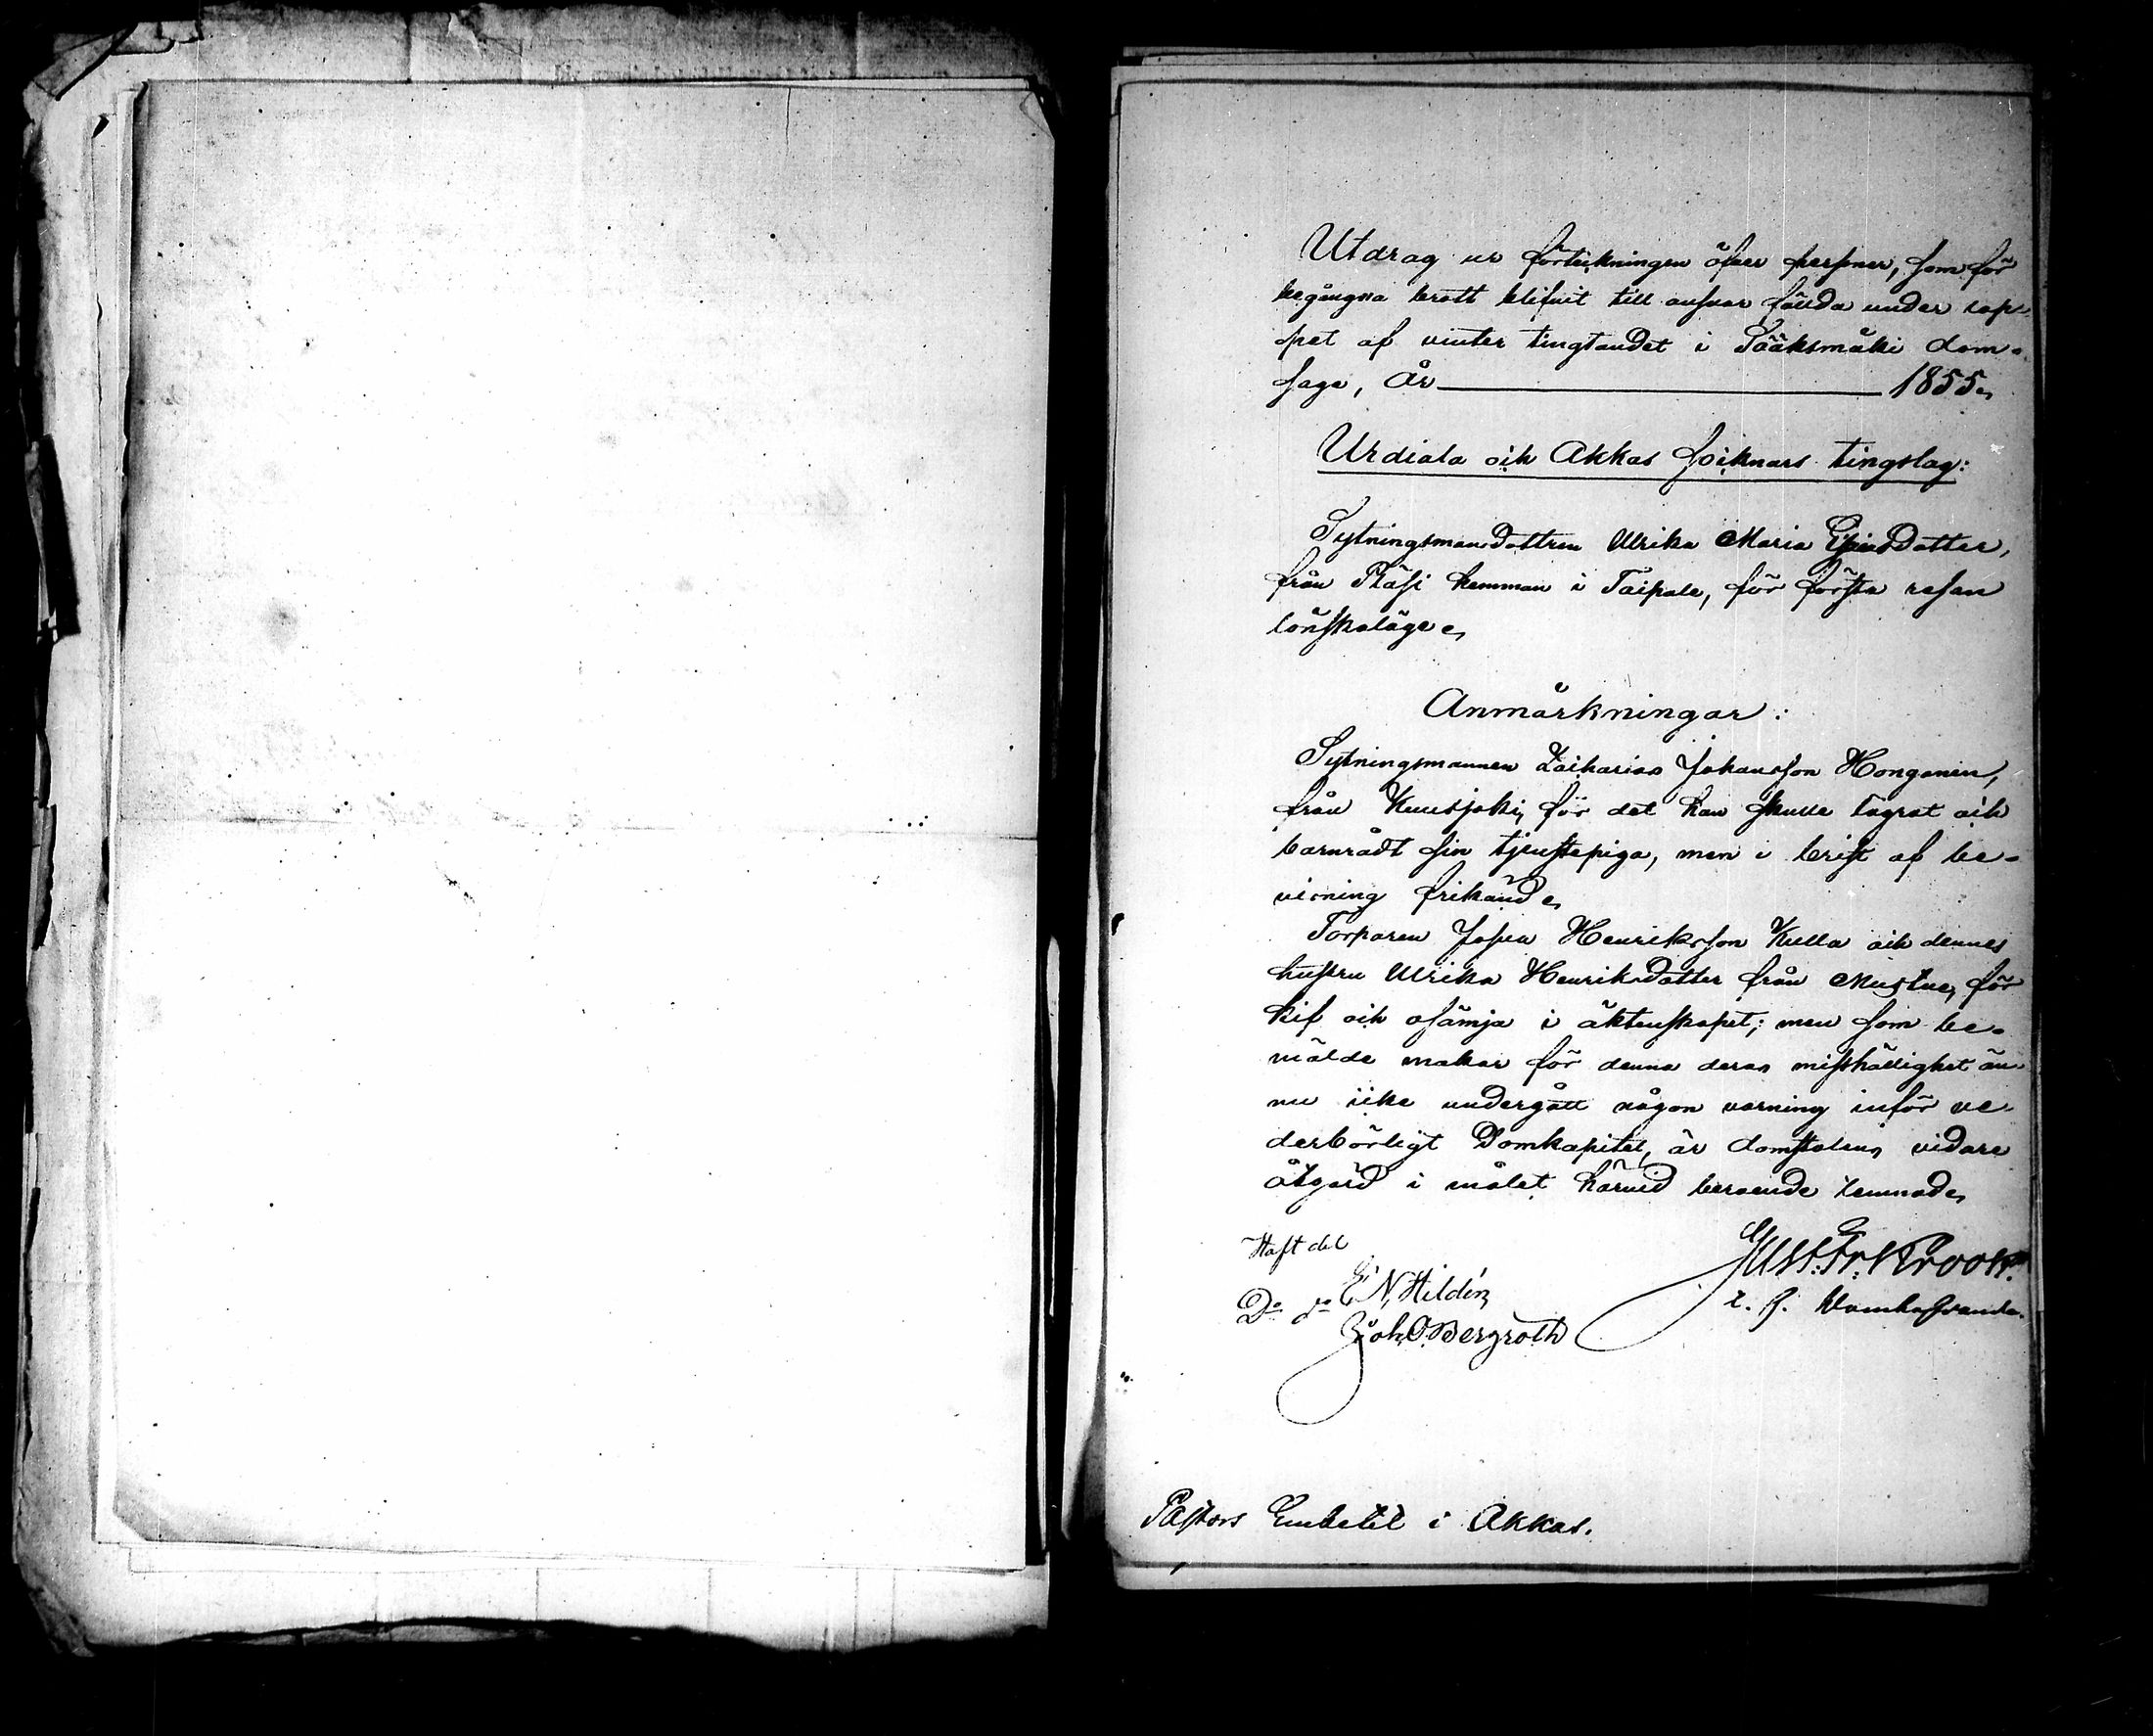 Utdrag ur förteckningen öfver personer, som för
begångna brott blifvit till ansvar fällda under lop-
pet af vinter tingtandet i Sääksmäki dom-
saga, År 1855.
Urdiala och Akkas socknars tingslag:
Sytningsmansdottren Ulrika Maria Ephrsdotter,
från Räsi hemman i Taipale, för första resan
lönskaläge.
Anmärkningar:
Sytningsmannen Zacharias Johansson Honganen,
från Kuusjoki, för det han skulle lägrat och
barnrådt sin tjenstepiga, men i brist af be-
visning frikänd.
Torparen Josua Henriksson Kulla och dennes
hustru Ulrika Henriksdotter från Mustue, för
kif och osämja i äktenskapet; men som be-
mälde makar för denna deras misshällighet än-
nu icke undergått någon varning inför ve-
derbörligt Domkapitel, är domstolens vidare
åtgärd i målet härvid beroende lemnad.
Haft del
E N Hildén
Do do Joh O Bergroth
Gust. Fr. Krook.
t. f. Domhafvande.
Pastors Embetet i Akkas.